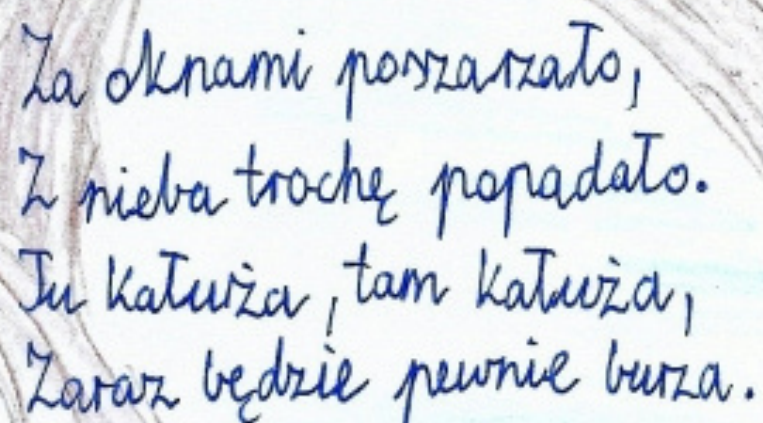 Za oknami poszarzało,
Z nieba trochę popadało.
Tu kałuża, tam kałuża,
Zaraz będzie pewnie burza.